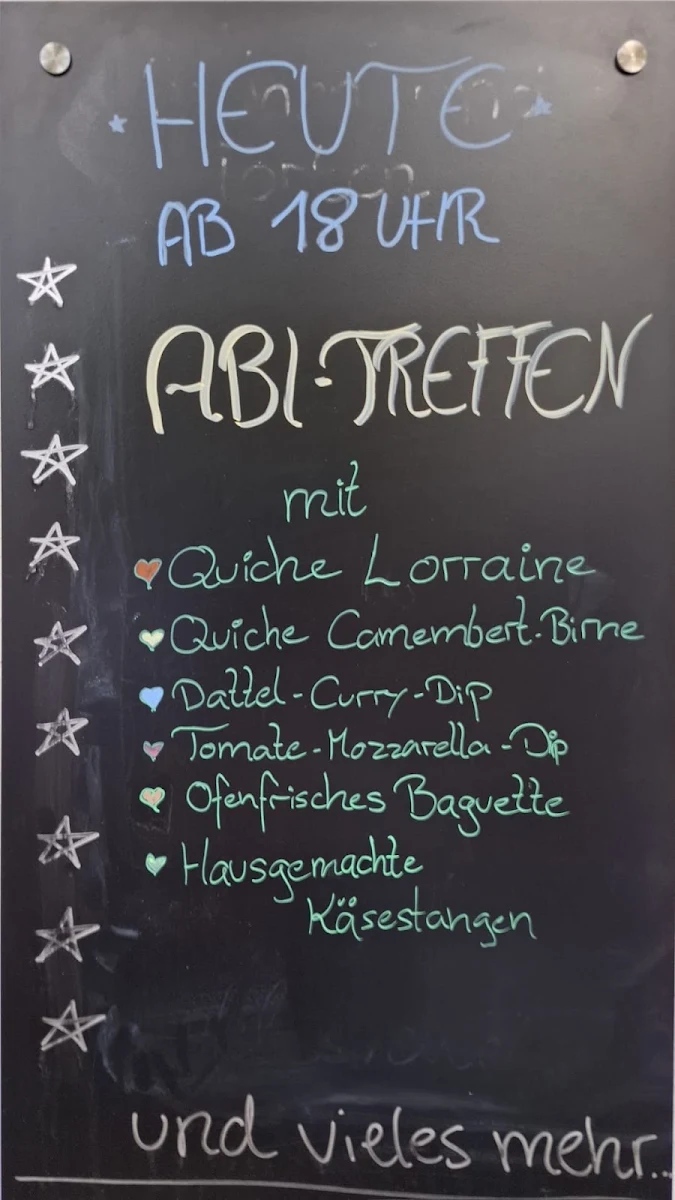 HEUTE
AB 18 UHR
ABI-TREFFEN
mit
Quiche Lorraine
Quiche Camembert-Birne
Dattel-Curry-Dip
Tomate-Mozzarella-Dip
Ofenfrisches Baguette
Hausgemachte
Käsestangen
und vieles mehr...